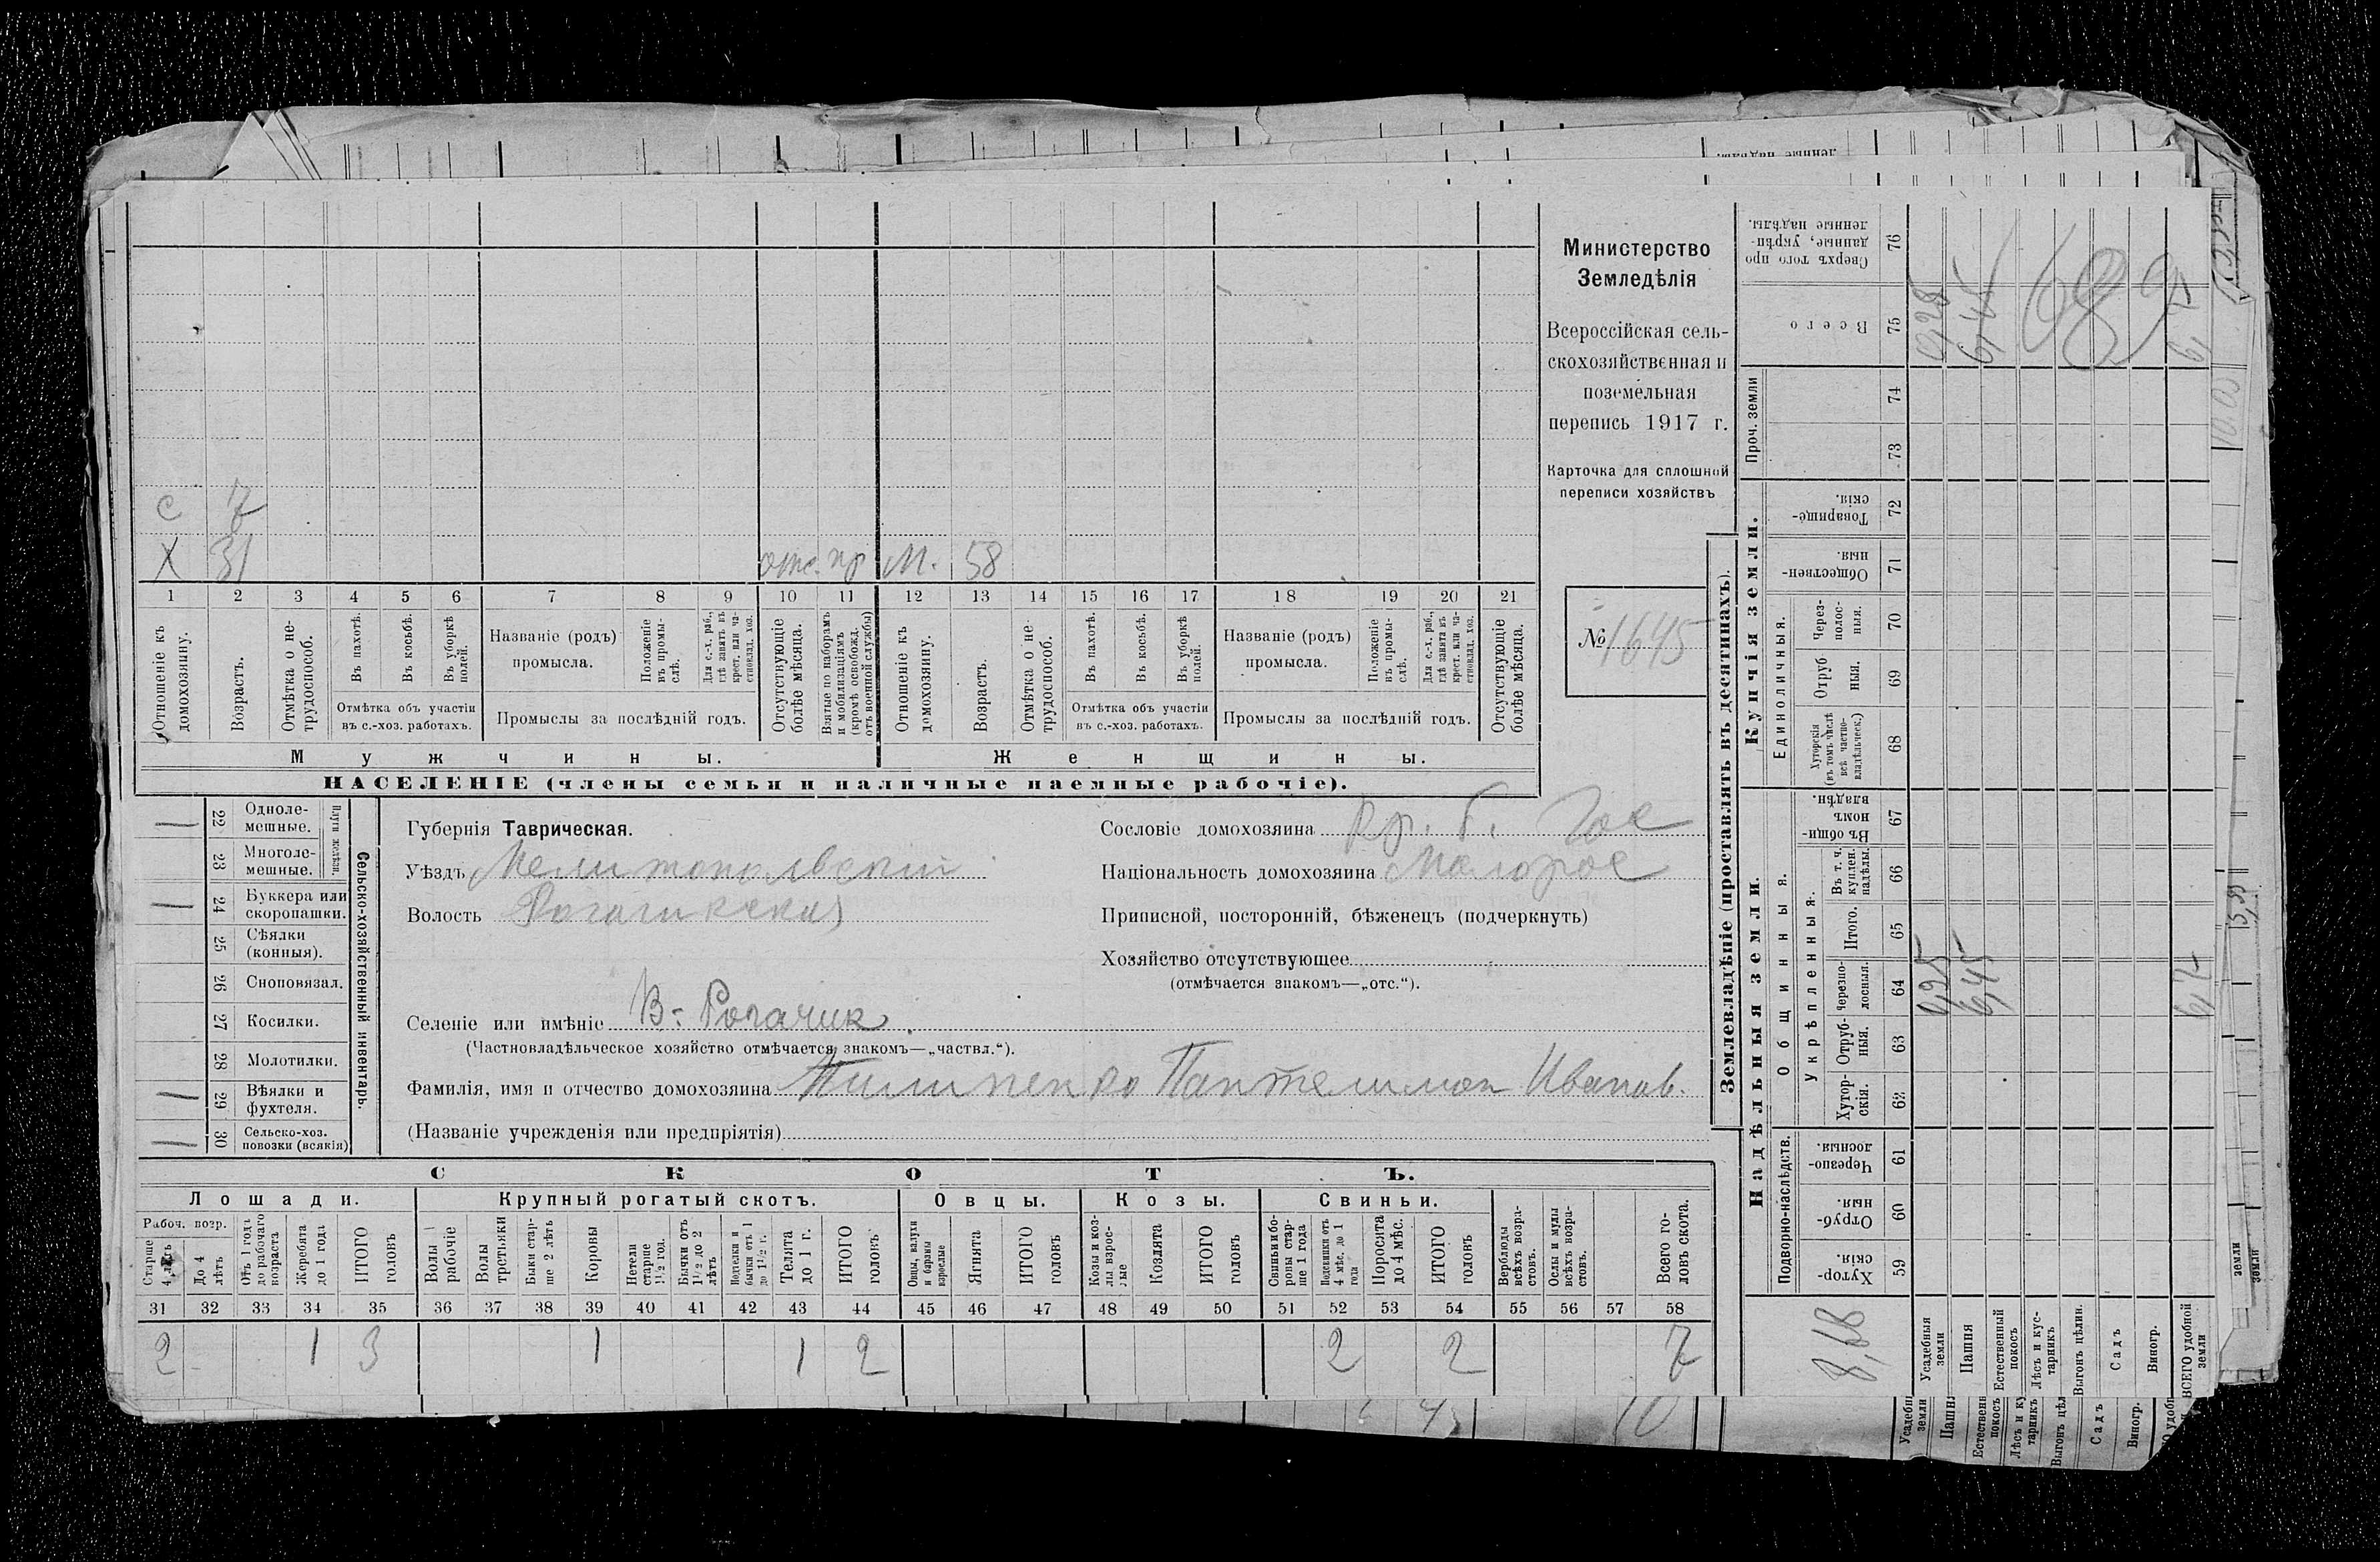 Министерство
Земледѣлія
Всероссійская сель-
скохозяйственная и
поземельная
перепись 1917 г.
Карточка для сплошной
переписи хозяйствъ
№ 1645
С 7
Х 31 отс. пр М. 58
1 2 3 4 5 6 7 8 9 10 11 12 13 14 15 16 17 18 19 20 21
Отношеніе къ домохозяину.
Возрастъ.
Отмѣтка о не-трудоспособ.
Въ пахотѣ.
Въ косьбѣ.
Въ уборкѣ полей.
Отмѣтка объ участіи
въ с.-хоз. работахъ.
Названіе (родъ)
промысла.
Положеніе въ промы-слѣ.
Для с.-х. раб., гдѣ занятъ въ крест. или ча-стновлад. хоз.
Промыслы за послѣдній годъ.
Отсутствующіе болѣе мѣсяца.
Взятые по наборамъ и мобилизаціямъ (кромѣ освобожд. отъ военной службы)
Отношеніе къ домохозяину.
Возрастъ.
Отмѣтка о не-трудоспособ.
Въ пахотѣ.
Въ косьбѣ.
Въ уборкѣ полей.
Отмѣтка объ участіи
въ с.-хоз. работахъ.
Названіе (родъ)
промысла.
Положеніе въ промы-слѣ.
Для с.-х. раб., гдѣ занята въ крест. или ча-стновлад. хоз.
Промыслы за послѣдній годъ.
Отсутствующіе болѣе мѣсяца.
Мужчины. Женщины.
НАСЕЛЕНІЕ (члены семьи и наличные наемные рабочіе).
22 Одноле-мешные.
23 Многоле-мешные.
Плуги желѣзн.
24 Буккера или скоропашки.
25 Сѣялки (конныя).
26 Сноповязал.
27 Косилки.
28 Молотилки.
29 Вѣялки и фухтеля.
30 Сельско-хоз. повозки (всякія)
Сельско-хозяйственный инвентарь.
Губернія Таврическая.
Уѣздъ Мелитопольскій
Волость Рогачикская
Селеніе или имѣніе В-Рогачик.
(Частновладѣльческое хозяйство отмѣчается знакомъ—„частвл.“).
Фамилія, имя и отчество домохозяина Пилипенко Пантелимон Иванов.
(Названіе учрежденія или предпріятія)
Сословіе домохозяина кр. б. Гос
Національность домохозяина Малорос
Приписной, посторонній, бѣженецъ (подчеркнуть)
Хозяйство отсутствующее
(отмѣчается знакомъ—„отс.“).
СКОТЪ.
Лошади. Крупный рогатый скотъ. Овцы. Козы. Свиньи.
Рабоч. возр.
Старше 4 лѣтъ
До 4 лѣтъ
Отъ 1 года до рабочаго возраста
Жеребята до 1 года
ИТОГО головъ
Волы рабочіе
Волы третьяки
Быки стар-ше 2 лѣтъ
Коровы
Нетели старше 1½ год.
Бычки отъ 1½ до 2 лѣтъ
Подтелки и бычки отъ 1 до 1½ г.
Телята до 1 г.
ИТОГО головъ
Овцы, валухи и бараны взрослые
Ягнята
ИТОГО головъ
Козы и коз-лы взрос-лые
Козлята
ИТОГО головъ
Свиньи и бо-ровы стар-ше 1 года
Подсвинки отъ 4 мѣс. до 1 года
Поросята до 4 мѣс.
ИТОГО головъ
Верблюды всѣхъ возра-стовъ.
Ослы и мулы всѣхъ возра-стовъ.
Всего го-ловъ скота.
31 32 33 34 35 36 37 38 39 40 41 42 43 44 45 46 47 48 49 50 51 52 53 54 55 56 57 58
2 1 3 1 1 2 2 2 7
Землевладѣніе (проставлять въ десятинахъ).
Надѣльныя земли. Купчія земли. Проч. земли
Подворно-наслѣдств.
Общинныя.
Укрѣпленныя.
Единоличныя.
Хутор-скія. 59
Отруб-ныя. 60
Черезпо-лосныя. 61
Хутор-скія. 62
Отруб-ныя. 63
Черезпо-лосныя. 64
Итого. 65
Въ т. ч. куплен. надѣлы. 66
Въ общин-номъ владѣн. 67
Хуторскія (въ томъ числѣ всѣ частно-владѣльческ.) 68
Отруб-ныя. 69
Через-полос-ныя. 70
Обществен-ныя. 71
Товарище-скія. 72
73
74
Всего 75
Сверхъ того про-данные, укрѣп-ленные надѣлы. 76
8,68
Усадебныя земли
Пашня
Естественный покосъ
Лѣсъ и кус-тарникъ
Выгонъ цѣлин.
Садъ
Виногр.
ВСЕГО удобной земли
0,25
6,45
6,7
6,45
10
Усадебн земли
Пашня
Садъ
Виногр.
земли
земли